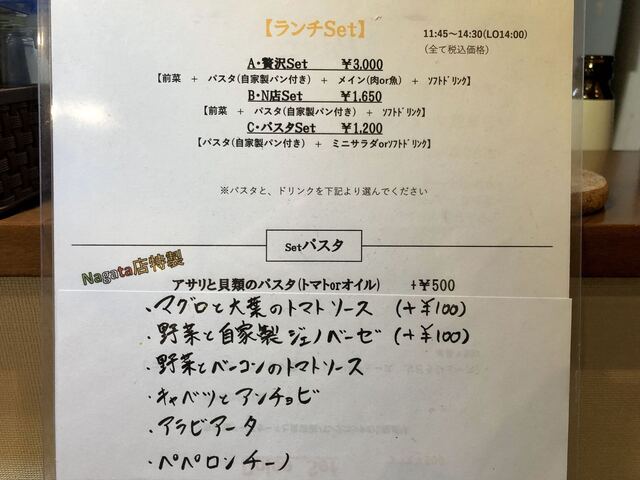 【ランチSet】
11:45～14:30(LO14:00)
(全て税込価格)
A・贅沢Set ￥3,000
【前菜 + パスタ(自家製パン付き) + メイン(肉or魚) + ソフトドリンク】
B・N店Set ￥1,650
【前菜 + パスタ(自家製パン付き) + ソフトドリンク】
C・パスタSet ￥1,200
【パスタ(自家製パン付き) + ミニサラダorソフトドリンク】
※パスタと、ドリンクを下記より選んでください
Setパスタ
Nagata店特製
アサリと貝類のパスタ(トマトorオイル) +￥500
・マグロと大葉のトマトソース (+￥100)
・野菜と自家製ジェノベーゼ (+￥100)
・野菜とベーコンのトマトソース
・キャベツとアンチョビ
・アラビアータ
・ペペロンチーノ